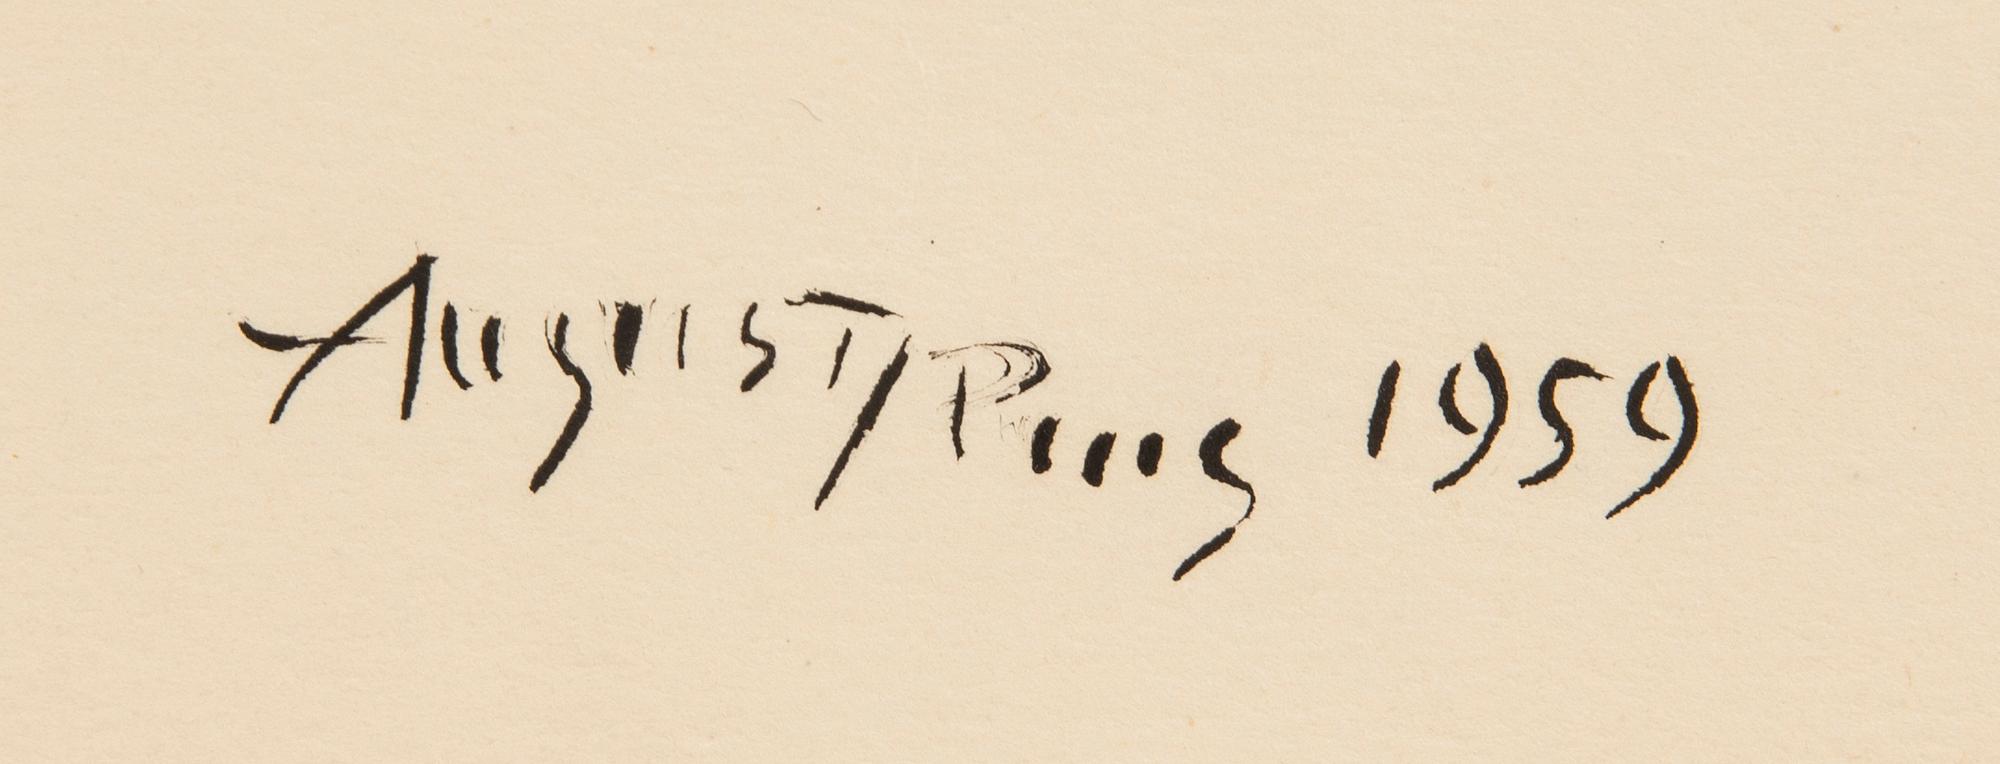 August Puig 1959